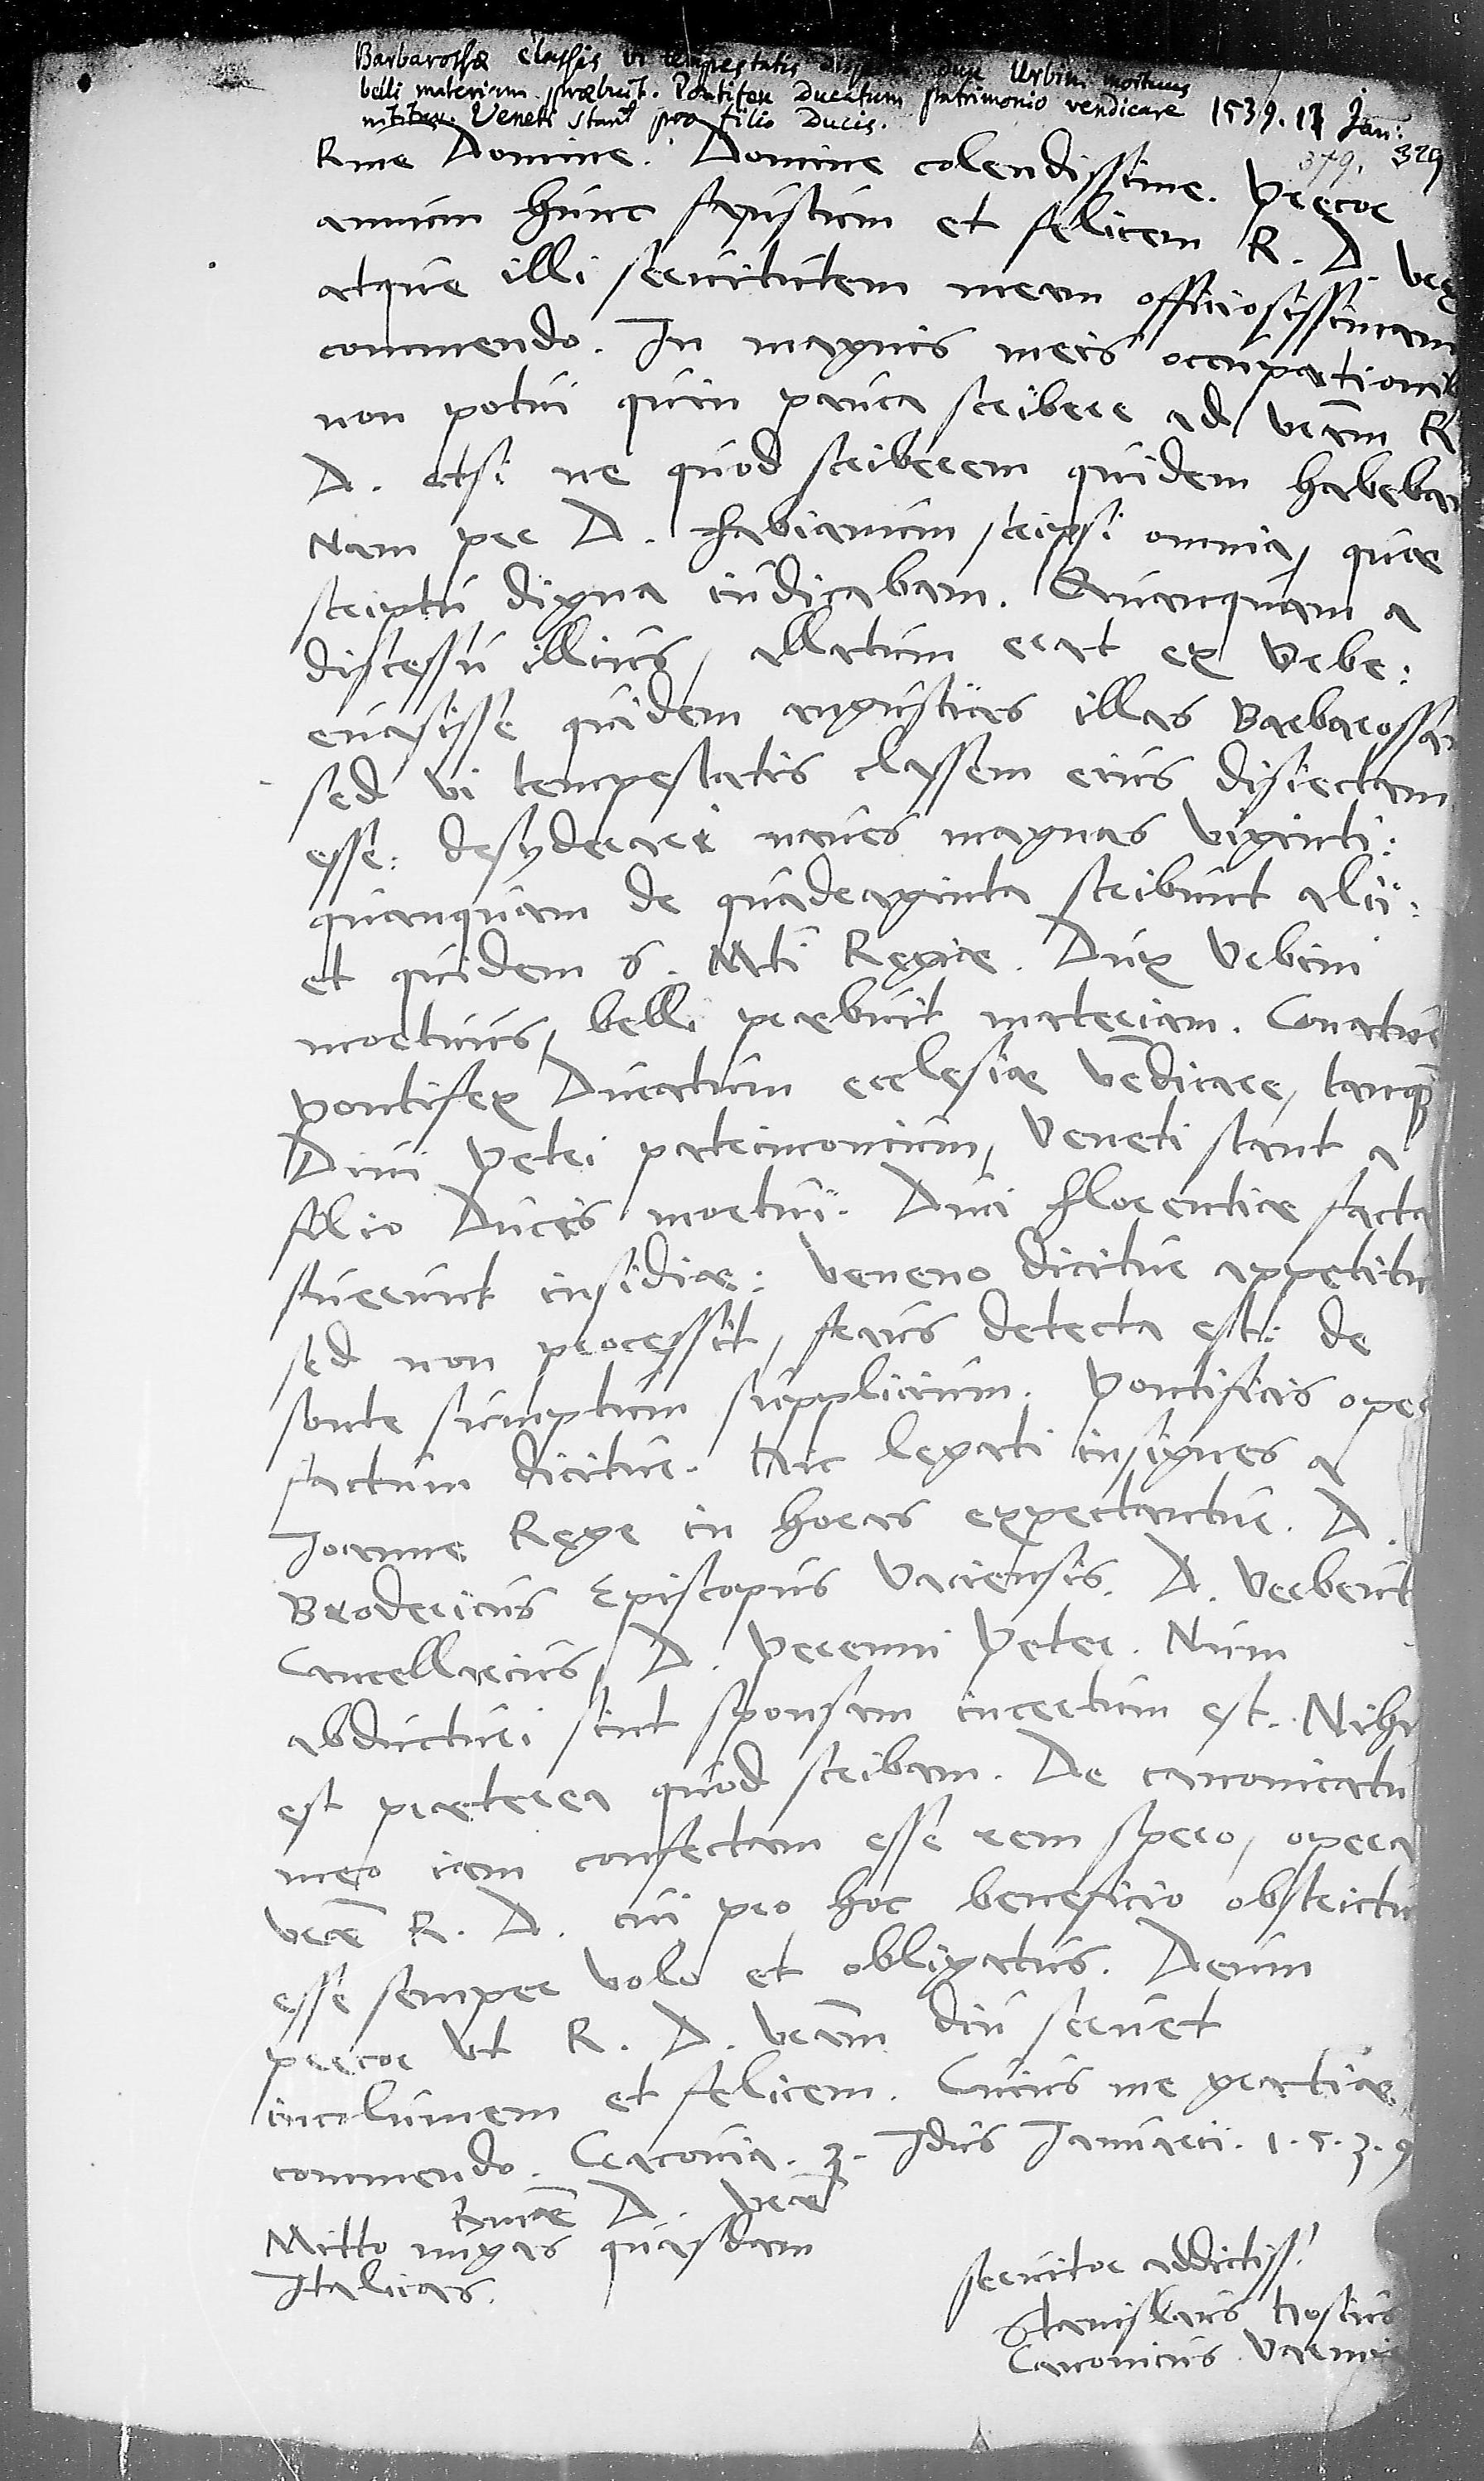 Barbarossæ classis vi tempestatis dux Urbini mortuus
belli materiam præbuit. Pontifex Ducatum patrimonio vendicare 1539. 11 Jan:
nititur. Veneti stant pro filio Ducis.
379. 329
Rme Domine. Domine colendissime. Precor
annum hunc faustum et felicem R. D. Vrę
atque illi servitutem meam officiosissimam
commendo. In magnis meis occupationib
non potui quin pauca scribere ad vram R
D. etsi ne quod scriberem quidem habebam
Nam per D. Fabianum scripsi omnia, quae
scriptu digna iudicabam. Quanquam a
discessu illius, allatum erat ex Urbe:
evasisse quidem angustias illas Barbarossam
sed vi tempestatis classem eius disiectam
esse: desyderari naves magnas viginti:
quanquam de quadraginta scribunt alii:
et quidem S. Mti Regiae. Dux Urbini
mortuus, belli praebuit materiam. Conatur
Pontifex Ducatum ecclesiae vendicare, tanq
Divi Petri patrimonium, Veneti stant a
filio Ducis mortui. Duci Florentiae facta
fuerunt insidiae: Veneno dicitur appetitu
sed non processit, fraus detecta est: de
sonte sumptum supplicium. Pontificis oper
factum dicitur. Huc legati insignes a
Ioanne Rege in horas expectantur. D.
Brodericus Episcopus Vaciensis. D. Verbeut
Cancellarius, D. Perenni Peter. Num
abducturi sint sponsam incertum est. Nihi
est praeterea quod scribam. De canonicatu
meo iam confectam esse rem spero, opera
vrae R. D. cui pro hoc beneficio obstrictu
esse semper volo et obligatus. Deum
precor ut R. D. vram diu servet
incolumem et felicem. Cuius me gratiae
commendo. Cracovia. 3. Idus Ianuarii. 1.5.3.9
Rmae D. vrae
Mitto nugas quasdam
Italicas.
servitor addictiss.
Stanislaus Hosius
Canonicus Varmie